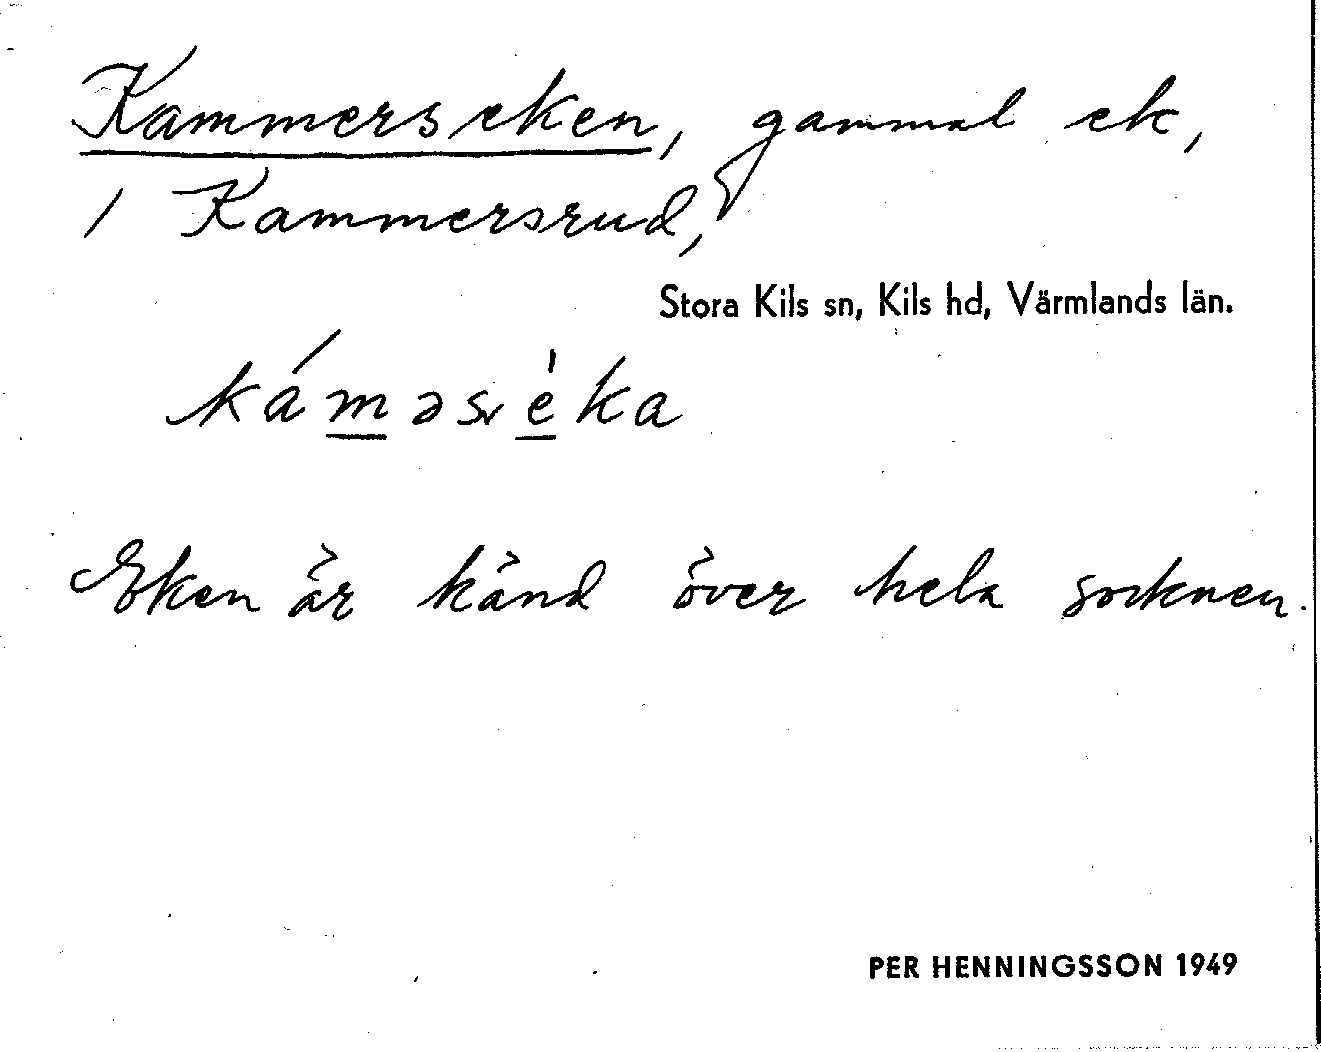 Kammerseken, gammal ek,
/ Kammersrud,
Stora Kils sn, Kils hd, Värmlands län.
káməsèka
Eken är känd över hela socknen.
PER HENNINGSSON 1949